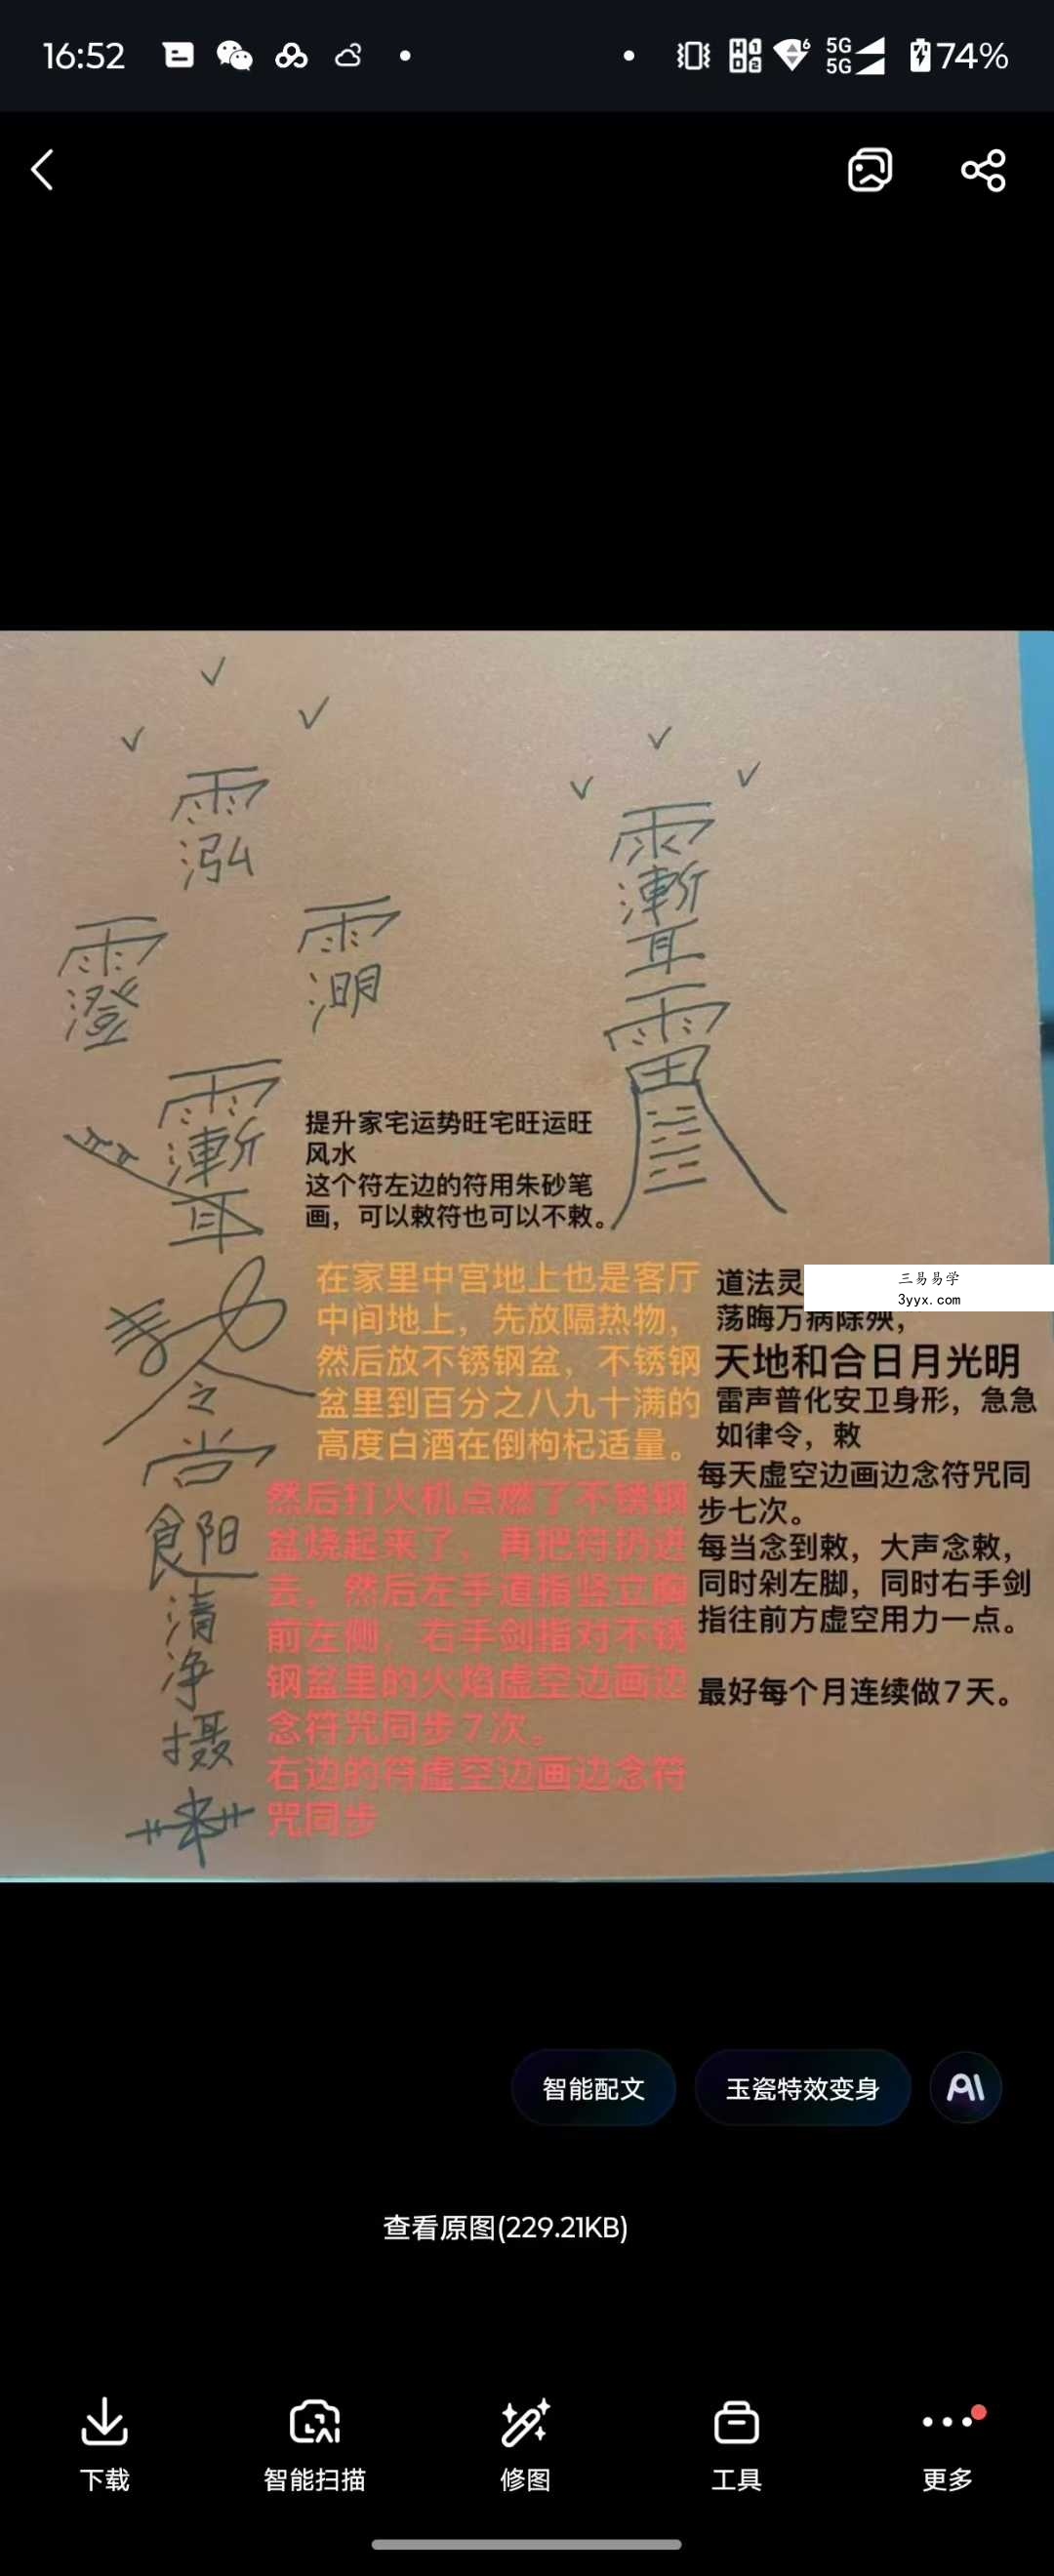 16:52
5G
5G
74%
提升家宅运势旺宅旺运旺
风水
这个符左边的符用朱砂笔
画，可以敕符也可以不敕。
在家里中宫地上也是客厅
中间地上，先放隔热物，
然后放不锈钢盆，不锈钢
盆里到百分之八九十满的
高度白酒在倒枸杞适量。
然后打火机点燃了不锈钢
盆烧起来了，再把符扔进
去，然后左手道指竖立胸
前左侧，右手剑指对不锈
钢盆里的火焰虚空边画边
念符咒同步7次。
右边的符虚空边画边念符
咒同步
道法灵
三易易学
3yyx.com
荡晦万病除殃，
天地和合日月光明
雷声普化安卫身形，急急
如律令，敕
每天虚空边画边念符咒同
步七次。
每当念到敕，大声念敕，
同时剁左脚，同时右手剑
指往前方虚空用力一点。
最好每个月连续做7天。
清
净
摄
智能配文
玉瓷特效变身
AI
查看原图(229.21KB)
下载
智能扫描
修图
工具
更多